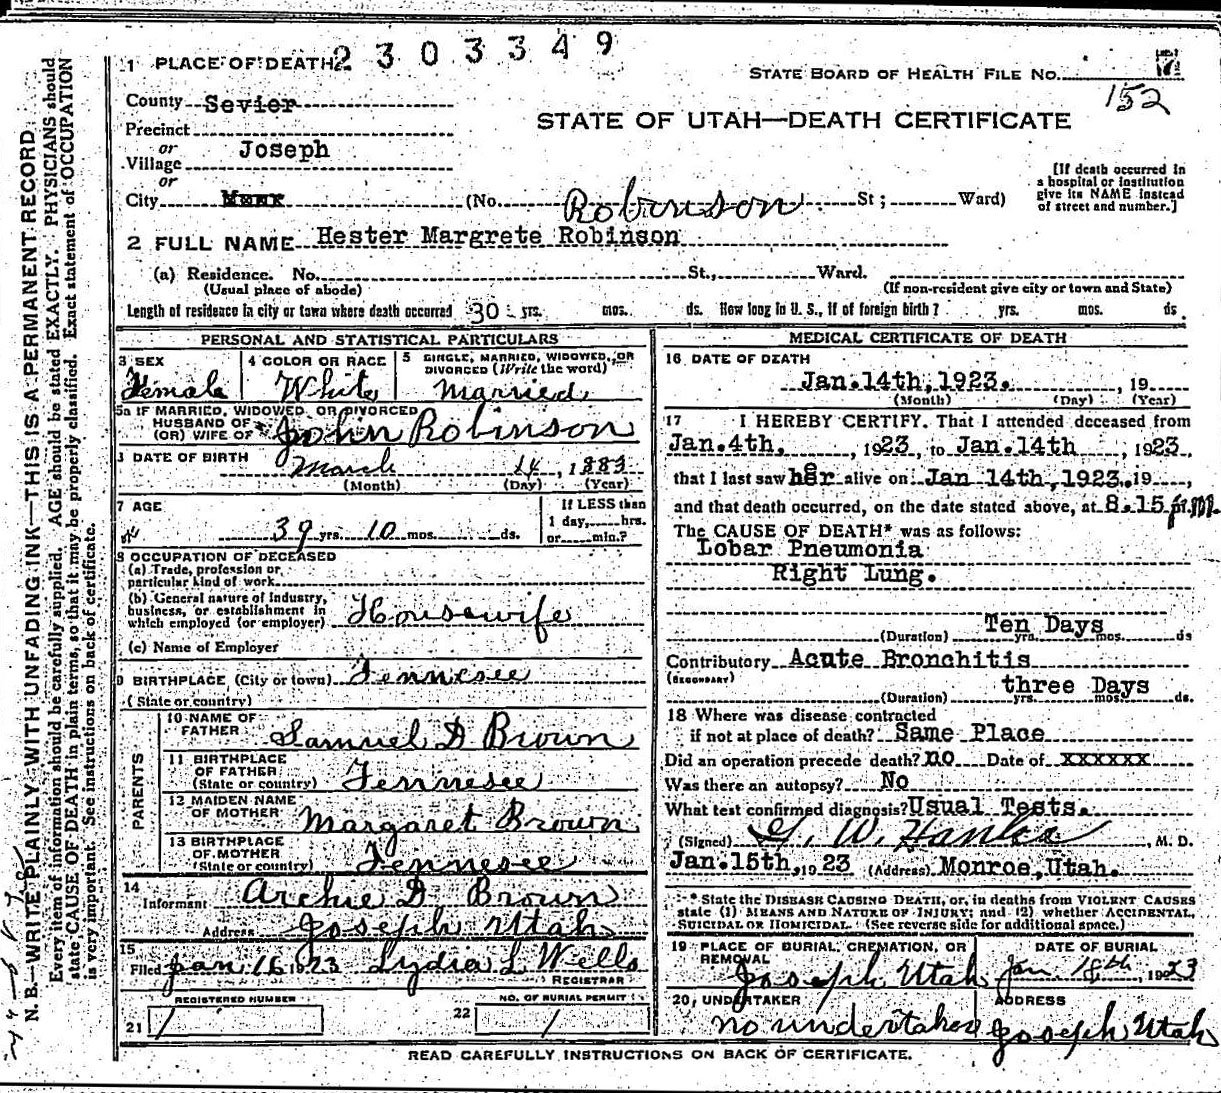 2 3 0 3 3 4 9
1 PLACE OF DEATH
STATE BOARD OF HEALTH FILE NO.
152
County Sevier
STATE OF UTAH—DEATH CERTIFICATE
Precinct
or
Village Joseph
or
City (No. Robinson St; Ward)
[If death occurred in
a hospital or institution
give its NAME instead
of street and number.]
2 FULL NAME Hester Margrete Robinson
(a) Residence. No. St., Ward.
(Usual place of abode) (If non-resident give city or town and State)
Length of residence in city or town where death occurred 30 yrs. mos. ds. How long in U. S., if of foreign birth? yrs. mos. ds.
PERSONAL AND STATISTICAL PARTICULARS
3 SEX
Female
4 COLOR OR RACE
White
5 SINGLE, MARRIED, WIDOWED, OR
DIVORCED (Write the word)
Married
5a IF MARRIED, WIDOWED OR DIVORCED
HUSBAND OF
(OR) WIFE OF John Robinson
DATE OF BIRTH
March 14, 1883
(Month) (Day) (Year)
7 AGE
39 yrs. 10 mos. ds.
If LESS than
1 day, hrs.
or min.?
8 OCCUPATION OF DECEASED
(a) Trade, profession or
particular kind of work
(b) General nature of industry,
business, or establishment in
which employed (or employer) Housewife
(c) Name of Employer
9 BIRTHPLACE (City or town) Tennesee
(State or country)
PARENTS
10 NAME OF
FATHER Samuel D Brown
11 BIRTHPLACE
OF FATHER
(State or country) Tennesee
12 MAIDEN NAME
OF MOTHER Margaret Brown
13 BIRTHPLACE
OF MOTHER
(State or country) Tennesee
14
Informant Archie D Brown
Address Joseph Utah
15
Filed Jan 16 1923 Lydia L Wells
REGISTRAR
REGISTERED NUMBER
21 1
NO. OF BURIAL PERMIT
22 1
MEDICAL CERTIFICATE OF DEATH
16 DATE OF DEATH
Jan.14th,1923. , 19
(Month) (Day) (Year)
17 I HEREBY CERTIFY. That I attended deceased from
Jan.4th, , 1923, to Jan.14th , 1923,
that I last saw her alive on Jan 14th,1923. 19 ,
and that death occurred, on the date stated above, at 8.15 p.m.
The CAUSE OF DEATH* was as follows:
Lobar Pneumonia
Right Lung.
Ten Days
(Duration) yrs. mos. ds
Contributory Acute Bronchitis
(SECONDARY)
three Days
(Duration) yrs. mos. ds.
18 Where was disease contracted
if not at place of death? Same Place
Did an operation precede death? no Date of xxxxxx
Was there an autopsy? No
What test confirmed diagnosis? Usual Tests.
(Signed) G. W. , M. D.
Jan.15th, 19 23 (Address) Monroe, Utah.
* State the DISEASE CAUSING DEATH, or, in deaths from VIOLENT CAUSES
state (1) MEANS AND NATURE OF INJURY; and (2) whether ACCIDENTAL,
SUICIDAL OR HOMICIDAL. (See reverse side for additional space.)
19 PLACE OF BURIAL, CREMATION, OR
REMOVAL
Joseph Utah
DATE OF BURIAL
Jan. 18th, 1923
20, UNDERTAKER
no undertaker
ADDRESS
Joseph Utah
READ CAREFULLY INSTRUCTIONS ON BACK OF CERTIFICATE.
N. B.—WRITE PLAINLY WITH UNFADING INK—THIS IS A PERMANENT RECORD
Every item of information should be carefully supplied. AGE should be stated EXACTLY. PHYSICIANS should
state CAUSE OF DEATH in plain terms, so that it may be properly classified. Exact statement of OCCUPATION
is very important. See instructions on back of certificate.